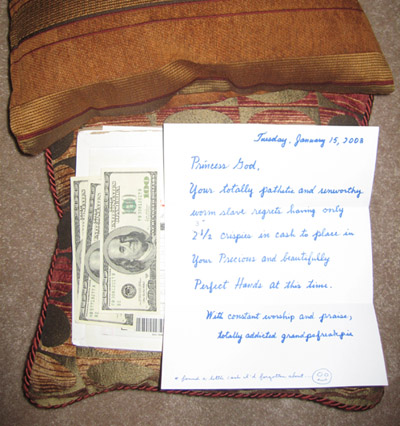 Tuesday, January 15, 2008
Princess God,
Your totally pathetic and unworthy
worm slave regrets having only
2 1/2 crispies in cash to place in
Your Precious and beautifully
Perfect Hands at this time.
With constant worship and praise,
totally addicted grandpafreakpie
* found a little cash I'd forgotten about
100